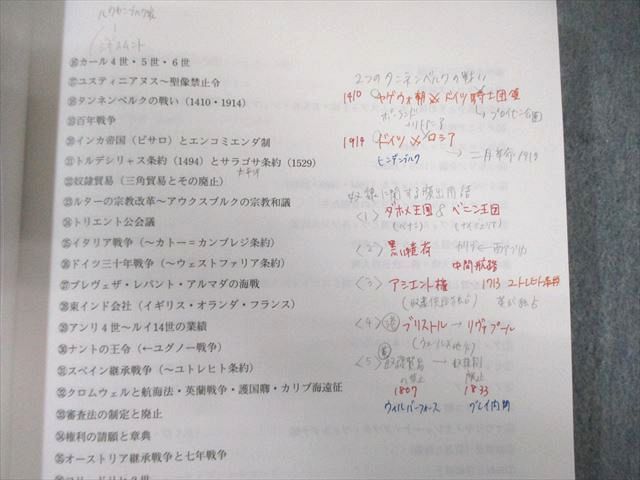 ルクセンブルク家
ジギスムント
⑯カール4世・5世・6世
⑰ユスティニアヌス～聖像禁止令
⑱タンネンベルクの戦い（1410・1914）
⑲百年戦争
⑳インカ帝国（ピサロ）とエンコミエンダ制
㉑トルデシリャス条約（1494）とサラゴサ条約（1529）
㉒奴隷貿易（三角貿易とその廃止）
㉓ルターの宗教改革～アウクスブルクの宗教和議
㉔トリエント公会議
㉕イタリア戦争（～カトー＝カンブレジ条約）
㉖ドイツ三十年戦争（～ウェストファリア条約）
㉗プレヴェザ・レパント・アルマダの海戦
㉘東インド会社（イギリス・オランダ・フランス）
㉙アンリ4世～ルイ14世の業績
㉚ナントの王令（←ユグノー戦争）
㉛スペイン継承戦争（～ユトレヒト条約）
㉜クロムウェルと航海法・英蘭戦争・護国卿・カリブ海遠征
㉝審査法の制定と廃止
㉞権利の請願と章典
㉟オーストリア継承戦争と七年戦争
2つのタンネンベルクの戦い
1410 ヤゲウォ朝 × ドイツ騎士団領
ポーランド
リトアニア
→ プロイセン公国
1914 ドイツ × ロシア
ヒンデンブルク
→ 二月革命 1917
奴隷に関する頻出用語
〈1〉 ダホメ王国 & ベニン王国
(ベナン) (ナイジェリア)
〈2〉 黒い積荷
カリブ ← 西アフリカ
中間航路
〈3〉 アシエント権 1713 ユトレヒト条約
英が独占
〈4〉 港 ブリストル → リヴァプール
〈5〉 奴隷貿易 → 奴隷制
の禁止 廃止
1807 1833
ウィルバーフォース グレイ内閣